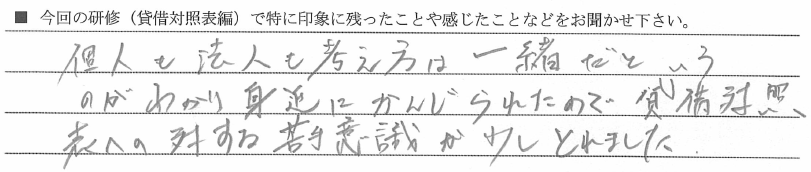 ■ 今回の研修（貸借対照表編）で特に印象に残ったことや感じたことなどをお聞かせ下さい。
個人も法人も考え方は一緒だという
のがわかり身近にかんじられたので貸借対照
表への対する苦手意識が少しとれました